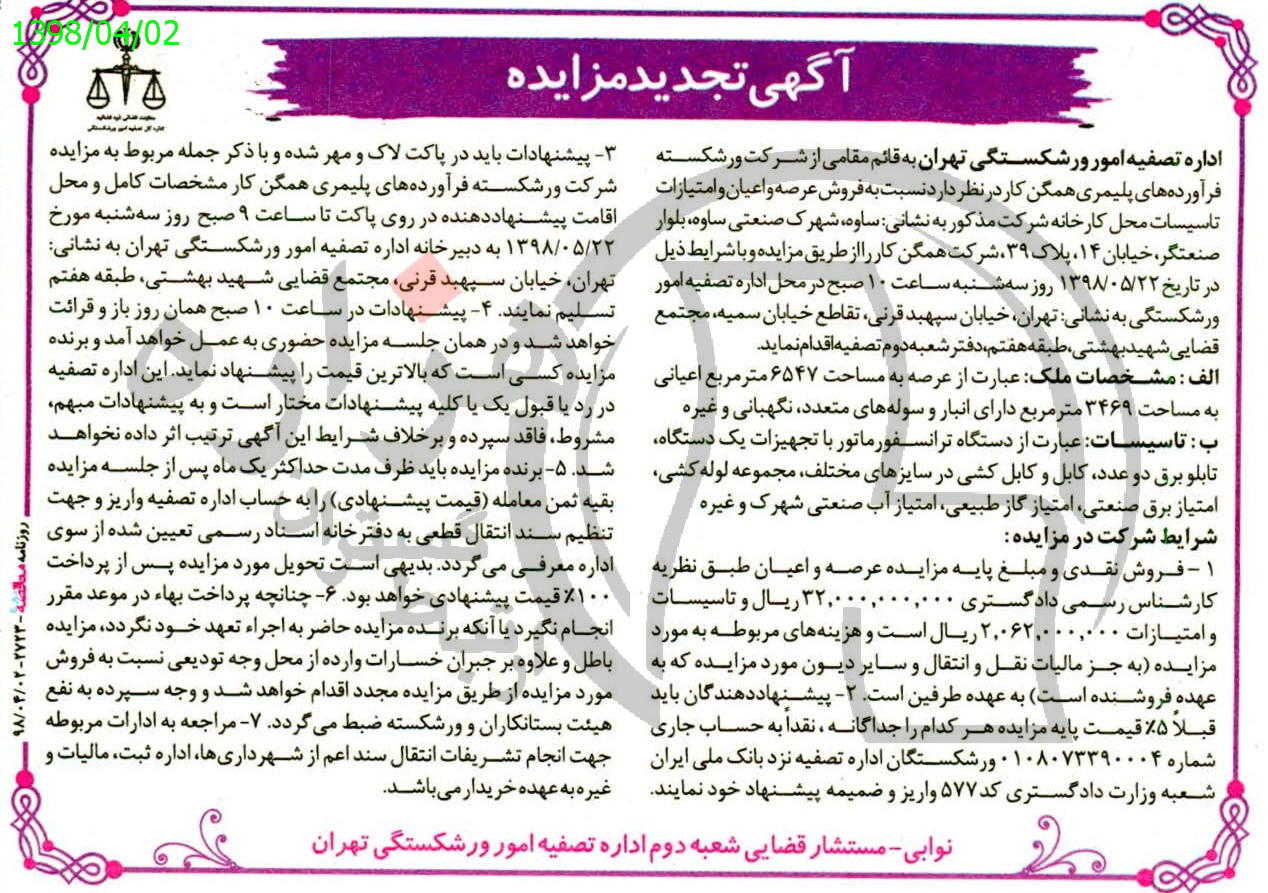 1398/04/02
معاونت قضائی قوه قضائیه
اداره کل تصفیه امور ورشکستگی
آگهی تجدید مزایده
اداره تصفیه امور ورشکستگی تهران به قائم مقامی از شرکت ورشکسته
فرآورده‌های پلیمری همگن کار در نظر دارد نسبت به فروش عرصه و اعیان و امتیازات
تاسیسات محل کارخانه شرکت مذکور به نشانی: ساوه، شهرک صنعتی ساوه، بلوار
صنعتگر، خیابان ۱۴، پلاک ۳۹، شرکت همگن کار را از طریق مزایده و با شرایط ذیل
در تاریخ ۱۳۹۸/۰۵/۲۲ روز سه‌شنبه ساعت ۱۰ صبح در محل اداره تصفیه امور
ورشکستگی به نشانی: تهران، خیابان سپهبد قرنی، تقاطع خیابان سمیه، مجتمع
قضایی شهید بهشتی، طبقه هفتم، دفتر شعبه دوم تصفیه اقدام نماید.
الف: مشخصات ملک: عبارت از عرصه به مساحت ۶۵۴۷ مترمربع اعیانی
به مساحت ۳۴۶۹ مترمربع دارای انبار و سوله‌های متعدد، نگهبانی و غیره
ب: تاسیسات: عبارت از دستگاه ترانسفورماتور با تجهیزات یک دستگاه،
تابلو برق دو عدد، کابل و کابل کشی در سایزهای مختلف، مجموعه لوله کشی،
امتیاز برق صنعتی، امتیاز گاز طبیعی، امتیاز آب صنعتی شهرک و غیره
شرایط شرکت در مزایده:
۱- فروش نقدی و مبلغ پایه مزایده عرصه و اعیان طبق نظریه
کارشناس رسمی دادگستری ۳۲,۰۰۰,۰۰۰,۰۰۰ ریال و تاسیسات
و امتیازات ۲,۰۶۲,۰۰۰,۰۰۰ ریال است و هزینه‌های مربوطه به مورد
مزایده (به جز مالیات نقل و انتقال و سایر دیون مورد مزایده که به
عهده فروشنده است) به عهده طرفین است. ۲- پیشنهاددهندگان باید
قبلاً ۵٪ قیمت پایه مزایده هر کدام را جداگانه، نقداً به حساب جاری
شماره ۰۱۰۸۰۷۳۳۹۰۰۰۴ ورشکستگان اداره تصفیه نزد بانک ملی ایران
شعبه وزارت دادگستری کد ۵۷۷ واریز و ضمیمه پیشنهاد خود نمایند.
۳- پیشنهادات باید در پاکت لاک و مهر شده و با ذکر جمله مربوط به مزایده
شرکت ورشکسته فرآورده‌های پلیمری همگن کار مشخصات کامل و محل
اقامت پیشنهاددهنده در روی پاکت تا ساعت ۹ صبح روز سه‌شنبه مورخ
۱۳۹۸/۰۵/۲۲ به دبیرخانه اداره تصفیه امور ورشکستگی تهران به نشانی:
تهران، خیابان سپهبد قرنی، مجتمع قضایی شهید بهشتی، طبقه هفتم
تسلیم نمایند. ۴- پیشنهادات در ساعت ۱۰ صبح همان روز باز و قرائت
خواهد شد و در همان جلسه مزایده حضوری به عمل خواهد آمد و برنده
مزایده کسی است که بالاترین قیمت را پیشنهاد نماید. این اداره تصفیه
در رد یا قبول یک یا کلیه پیشنهادات مختار است و به پیشنهادات مبهم،
مشروط، فاقد سپرده و برخلاف شرایط این آگهی ترتیب اثر داده نخواهد
شد. ۵- برنده مزایده باید ظرف مدت حداکثر یک ماه پس از جلسه مزایده
بقیه ثمن معامله (قیمت پیشنهادی) را به حساب اداره تصفیه واریز و جهت
تنظیم سند انتقال قطعی به دفترخانه اسناد رسمی تعیین شده از سوی
اداره معرفی می گردد. بدیهی است تحویل مورد مزایده پس از پرداخت
۱۰۰٪ قیمت پیشنهادی خواهد بود. ۶- چنانچه پرداخت بهاء در موعد مقرر
انجام نگیرد یا آنکه برنده مزایده حاضر به اجراء تعهد خود نگردد، مزایده
باطل و علاوه بر جبران خسارات وارده از محل وجه تودیعی نسبت به فروش
مورد مزایده از طریق مزایده مجدد اقدام خواهد شد و وجه سپرده به نفع
هیئت بستانکاران و ورشکسته ضبط می گردد. ۷- مراجعه به ادارات مربوطه
جهت انجام تشریفات انتقال سند اعم از شهرداری‌ها، اداره ثبت، مالیات و
غیره به عهده خریدار می‌باشد.
نوابی- مستشار قضایی شعبه دوم اداره تصفیه امور ورشکستگی تهران
روزنامه مناقصه - ۲۷۲۳ - ۹۸/۰۴/۰۲